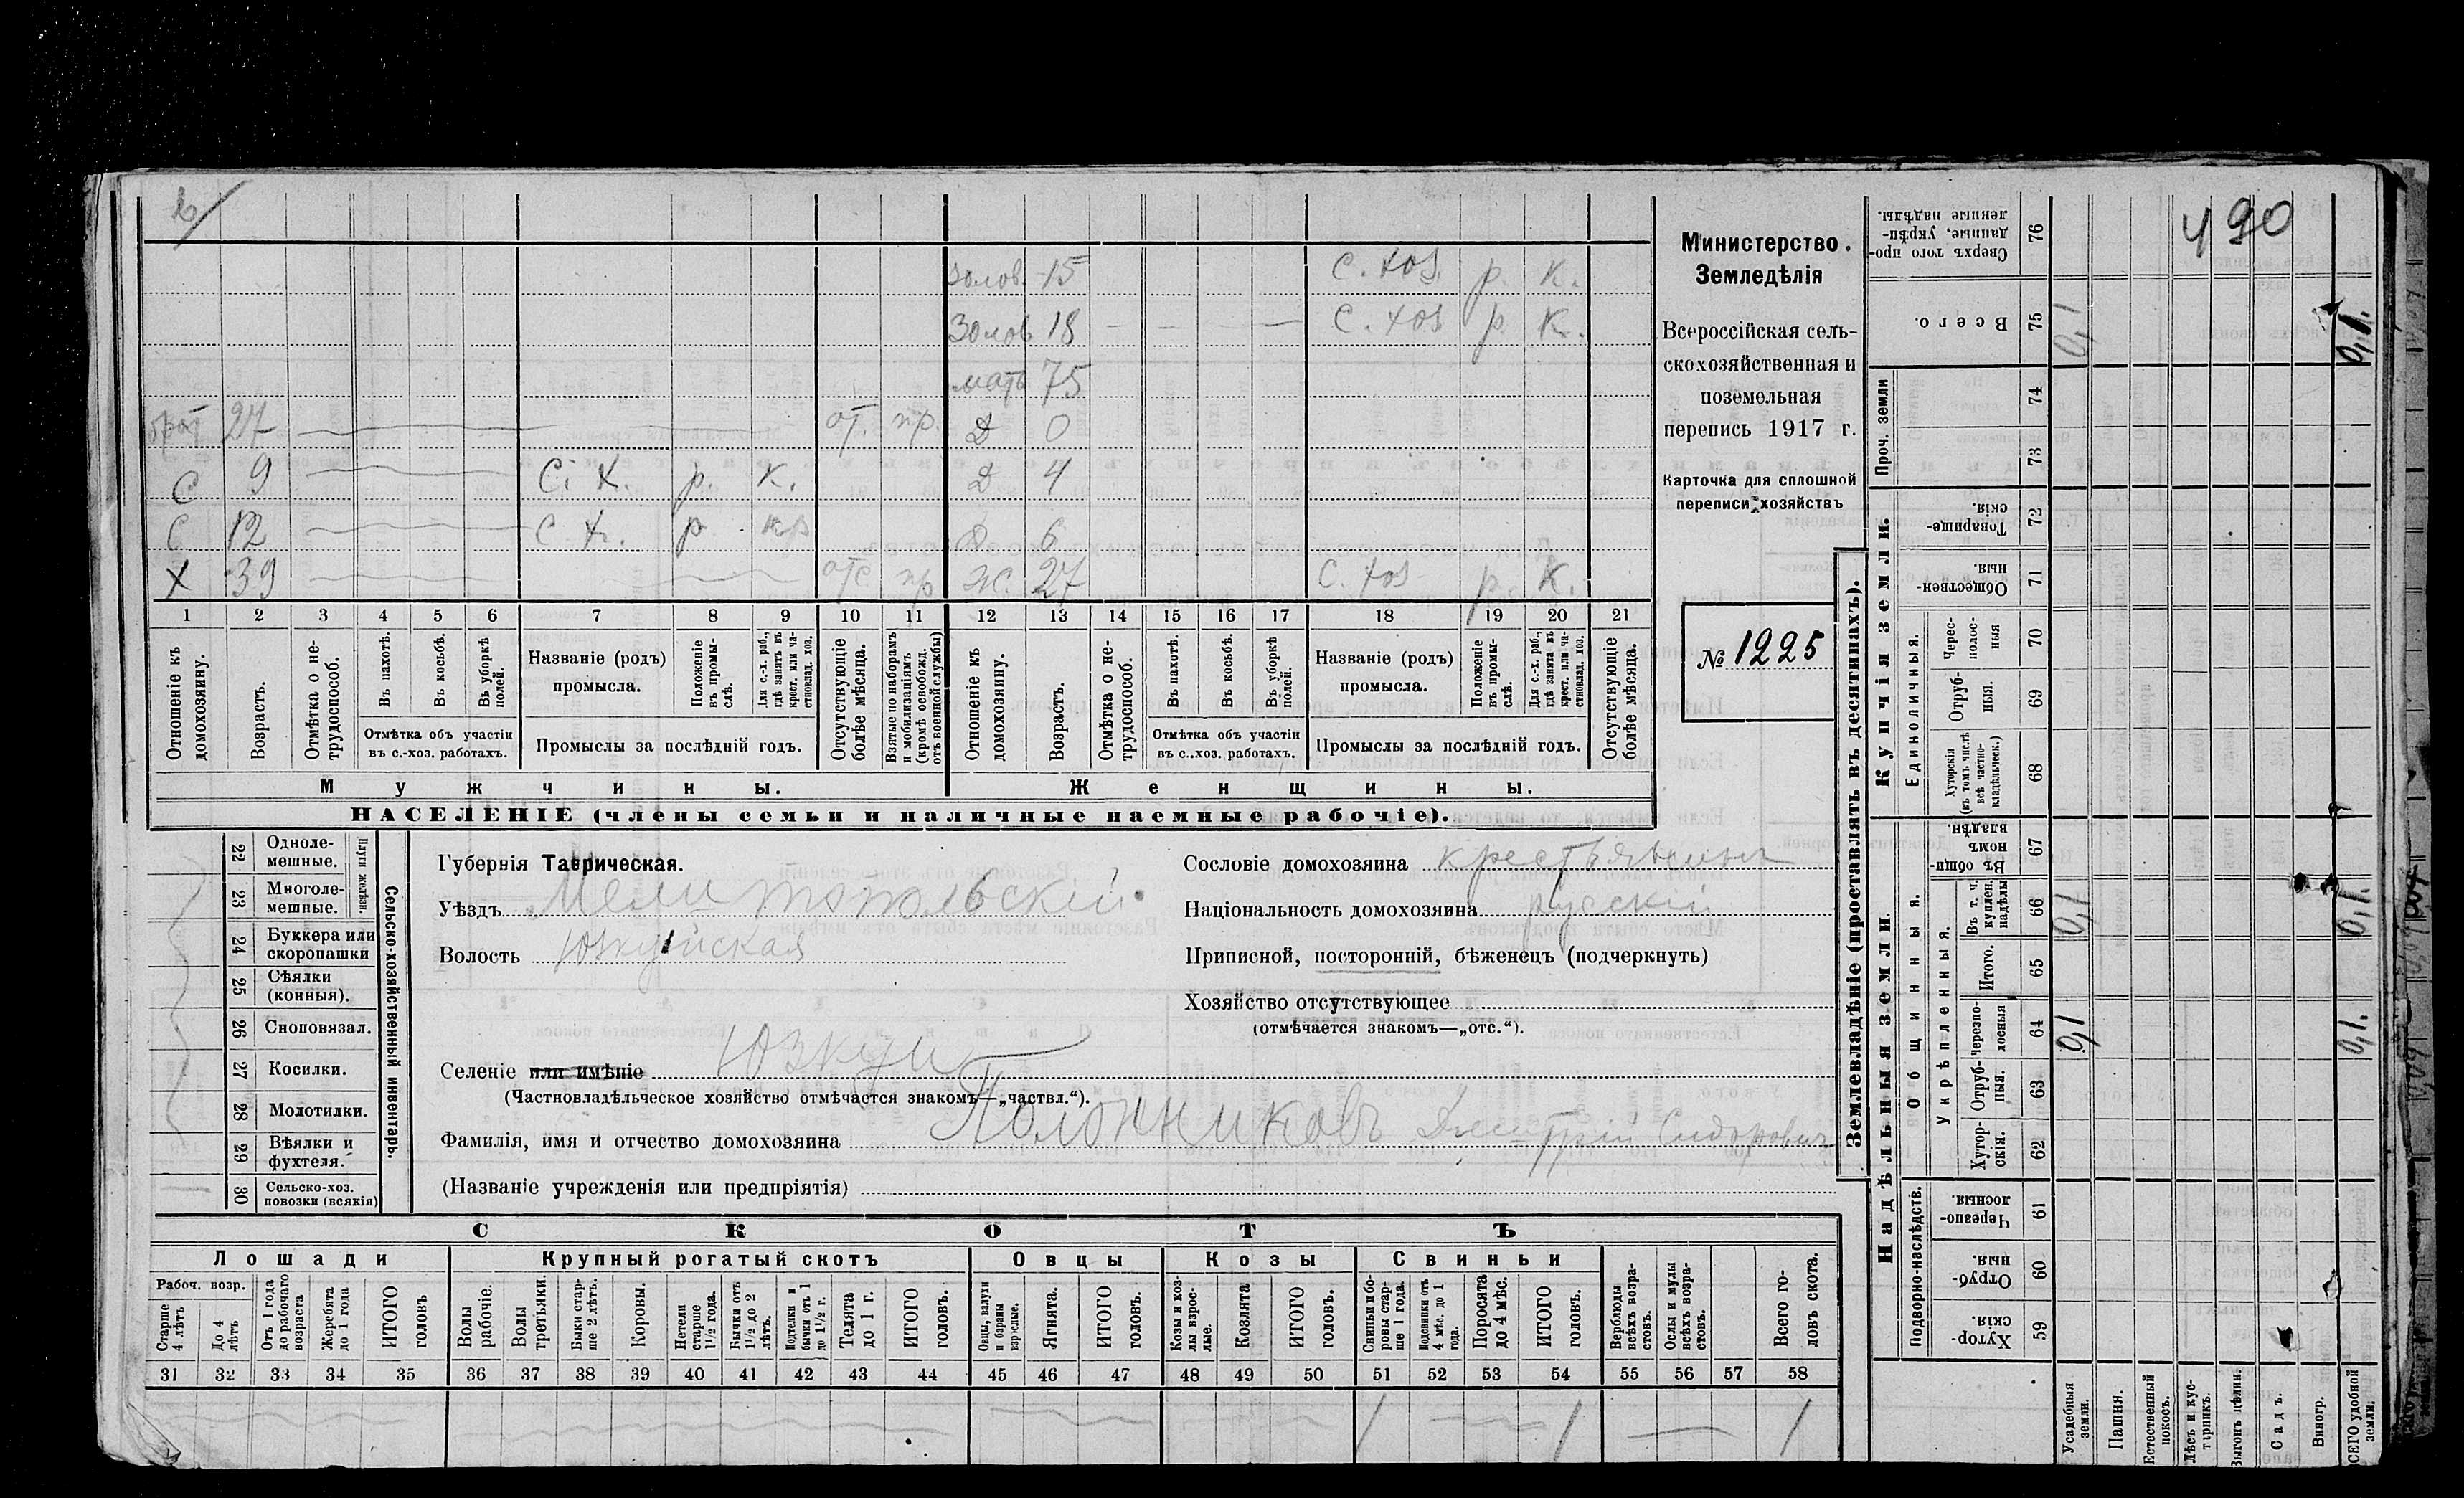 золов. 15 С. хоз. р. к.
золов 18 С. хоз р. к.
мать 75
брат 27 от. пр. Д 0
С 9 С. х. р. к. Д 4
С 12 С х. р. кр Д 6
Х 39 отс пр Ж. 27 С. хоз р. К.
1 2 3 4 5 6 7 8 9 10 11 12 13 14 15 16 17 18 19 20 21
Отношеніе къ домохозяину.
Возрастъ.
Отмѣтка о нетрудоспособ.
Въ пахотѣ.
Въ косьбѣ.
Въ уборкѣ полей.
Отмѣтка объ участіи
въ с.-хоз. работахъ.
Названіе (родъ)
промысла.
Положеніе въ промыслѣ.
Для с.-х. раб., гдѣ занятъ въ крест. или частновлад. хоз.
Промыслы за послѣдній годъ.
Отсутствующіе болѣе мѣсяца.
Взятые по наборамъ и мобилизаціямъ (кромѣ освобожд. отъ военной службы)
Отношеніе къ домохозяину.
Возрастъ.
Отмѣтка о нетрудоспособ.
Въ пахотѣ.
Въ косьбѣ.
Въ уборкѣ полей.
Отмѣтка объ участіи
въ с.-хоз. работахъ.
Названіе (родъ)
промысла.
Положеніе въ промыслѣ.
Для с.-х. раб., гдѣ занята въ крест. или частновлад. хоз.
Промыслы за послѣдній годъ.
Отсутствующіе болѣе мѣсяца.
Мужчины. Женщины.
НАСЕЛЕНІЕ (члены семьи и наличные наемные рабочіе).
Министерство.
Земледѣлія
Всероссійская сель-
скохозяйственная и
поземельная
перепись 1917 г.
Карточка для сплошной
переписи хозяйствъ
№ 1225
22 Одноле-
мешные.
23 Многоле-
мешные.
Плуги желѣзн.
24 Буккера или
скоропашки
25 Сѣялки
(конныя).
26 Сноповязал.
27 Косилки.
28 Молотилки.
29 Вѣялки и
фухтеля.
30 Сельско-хоз.
повозки (всякія)
Сельско-хозяйственный инвентарь.
Губернія Таврическая.
Уѣздъ Мелитопольскій.
Волость Юзкуйская
Сословіе домохозяина крестьянинъ
Національность домохозяина русскій
Приписной, посторонній, бѣженецъ (подчеркнуть)
Хозяйство отсутствующее
(отмѣчается знакомъ—„отс.“).
Селеніе или имѣніе Юзкуи
(Частновладѣльческое хозяйство отмѣчается знакомъ—„частвл.“).
Фамилія, имя и отчество домохозяина Полонниковъ Дмитрій Сидоровичъ
(Названіе учрежденія или предпріятія)
СКОТЪ
Лошади Крупный рогатый скотъ Овцы Козы Свиньи
Рабоч. возр.
Старше 4 лѣтъ
До 4 лѣтъ
Отъ 1 года до рабочаго возраста
Жеребята до 1 года
ИТОГО головъ
Волы рабочіе.
Волы третьяки.
Быки старше 2 лѣтъ.
Коровы.
Нетели старше 1½ года.
Бычки отъ 1½ до 2 лѣтъ.
Подтелки и бычки отъ 1 до 1½ г.
Телята до 1 г.
ИТОГО головъ.
Овцы, валухи и бараны взрослые.
Ягнята.
ИТОГО головъ.
Козы и козлы взрослые.
Козлята
ИТОГО головъ.
Свиньи и боровы старше 1 года.
Подсвинки отъ 4 мѣс. до 1 года.
Поросята до 4 мѣс.
ИТОГО головъ.
Верблюды всѣхъ возрастовъ.
Ослы и мулы всѣхъ возрастовъ.
Всего головъ скота.
31 32 33 34 35 36 37 38 39 40 41 42 43 44 45 46 47 48 49 50 51 52 53 54 55 56 57 58
1 1 1
Землевладѣніе (проставлять въ десятинахъ).
490
Сверхъ того проданные, укрѣпленные надѣлы. 76
Всего. 75 0,1 0,1.
Проч. земли 74
73
Купчія земли.
Товарищескія. 72
Общественныя. 71
Единоличныя.
Череcполосныя 70
Отрубныя. 69
Хуторскія (въ томъ числѣ всѣ частновладѣльческ.) 68
Надѣльныя земли.
Общинныя.
Въ общинномъ владѣн. 67
Укрѣпленныя.
Въ т. ч. куплен. надѣлы 66 0,1 0,1.
Итого. 65
Черезполосныя 64 0,1 0,1.
Отрубныя. 63
Хуторскія. 62
Подворно-наслѣдств.
Черезполосныя. 61
Отрубныя. 60
Хуторскія. 59
Усадебныя земли.
Пашня.
Естественный покосъ.
Лѣсъ и кустарникъ.
Выгонъ цѣлин.
Садъ.
Виногр.
ВСЕГО удобной земли.